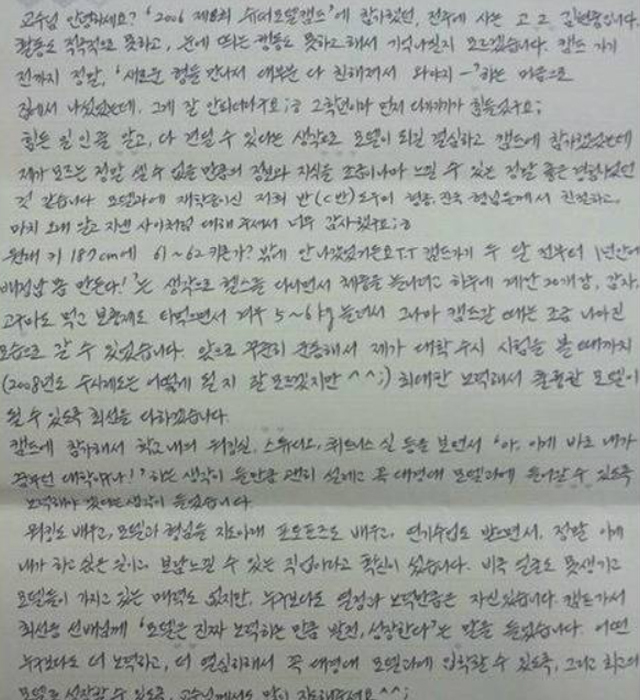 교수님 안녕하세요? '2006 제8회 슈퍼모델캠프'에 참가했던, 전주에 사는 고2 김원중입니다.
활동도 적극적으로 못하고, 눈에 띄는 행동도 못하고해서 기억나실지 모르겠습니다. 캠프 가기
전까지 정말, '새로운 형들 만나서 대부분 다 친해져서 와야지-'하는 마음으로
집에서 나섰었는데, 그게 잘 안되더라구요;ㅎ 2학년이라 먼저 다가가기가 힘들었구요;
힘든 일인줄 알고, 다 견딜 수 있다는 생각으로 모델이 되길 결심하고 캠프에 참가했었는데
제가 모르는 정말 셀 수 없을 만큼의 경험과 지식을 조금이나마 느낄 수 있는 정말 좋은 경험이었던
것 같습니다 모델과에 재학중이신 저희 반(C반) 도우미 형들, 전국 형님들께서 친절하고,
마치 오래 알고 지낸 사이처럼 대해 주셔서 너무 감사했구요;ㅎ
원래 키 187cm에 61~62키론가? 밖에 안나갔었거든요TT 캠프가기 두 달 전부터 '1년안에
만든다!'는 생각으로 헬스를 다니면서 체중을 늘리려고 하루에 계란 20개랑, 감자,
고구마도 먹고 보충제도 타먹으면서 겨우 5~6kg 늘려서 그나마 캠프갈 때는 조금 나아진
모습으로 갈 수 있었습니다. 앞으로 꾸준히 운동해서 제가 대학 수시 시험을 볼 때까지
(2008년도 수시제도는 어떻게 될 지 잘모르겠지만 ^^;) 최대한 노력해서 훌륭한 모델이
될 수 있도록 최선을 다하겠습니다.
캠프에 참가해서 학교 내의 워킹실, 스튜디오, 휘트니스 실 등을 보면서 '아, 이게 바로 내가
꿈꾸던 대학이구나!'하는 생각이 들만큼 괜히 설레고 꼭 대경대 모델과에 들어갈 수 있도록
노력해야 겠다는 생각이 들었습니다.
워킹도 배우고, 모델과 형님들 지도아래 포토포즈도 배우고, 연기수업도 받으면서, 정말 이게
내가 하고 싶은 일이고 보람느낄 수 있는 직업이라고 확신이 섰습니다. 비록 얼굴도 못생기고
모델들이 가지고 있는 매력도 없지만, 누구보다도 열정과 노력만큼은 자신있습니다. 캠프가서
최선용 선배님께 '모델은 진짜 노력하는 만큼 발전, 성장한다'는 말을 들었습니다. 어떤
누구보다도 더 노력하고, 더 열심히해서 꼭 대경대 모델과에 입학할 수 있도록, 그리고 최고의
모델로 성장할 수 있도록, 교수님께서도 많이 지도해주세요^^;